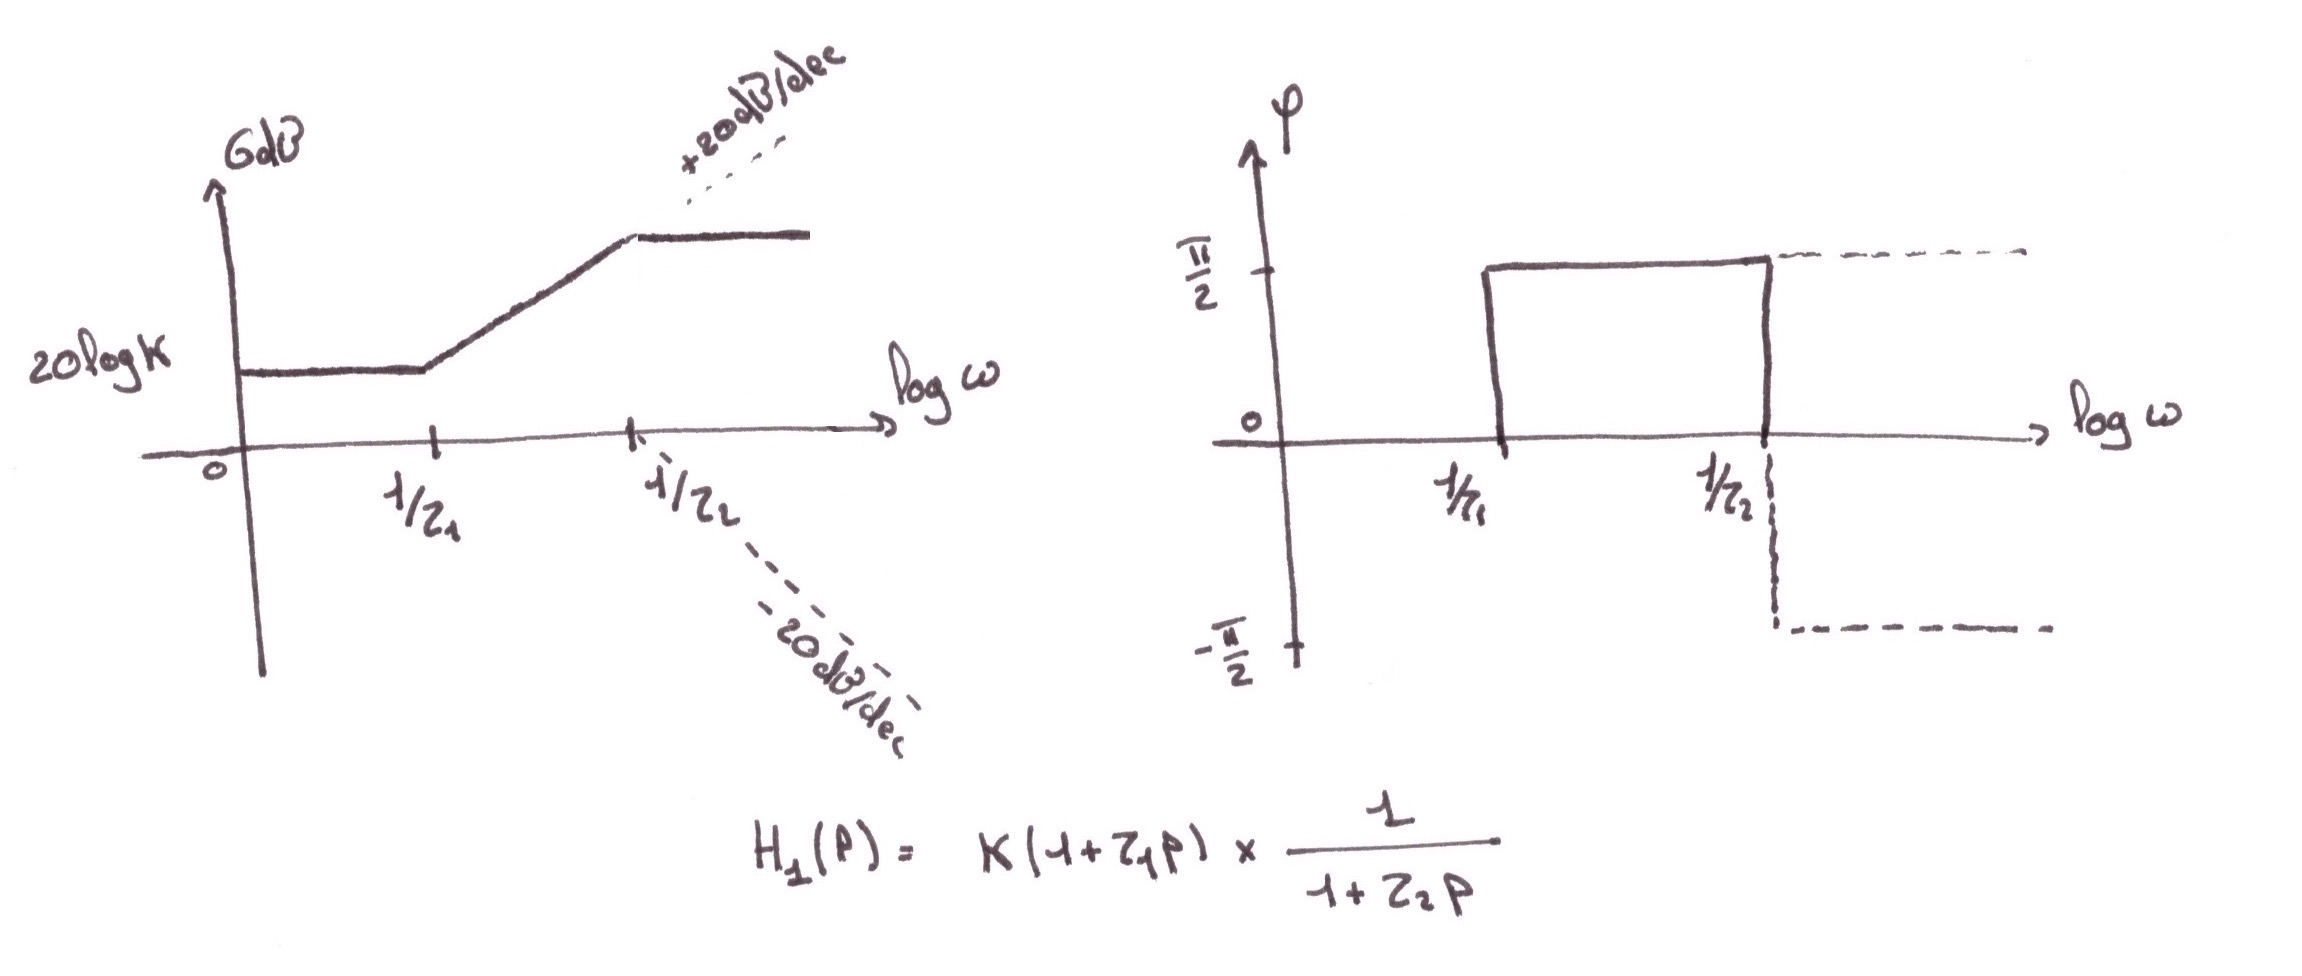 GdB
+20dB/dec
20logK
log ω
0
1/τ₁
1/τ₂
-20dB/dec
φ
π/2
0
log ω
1/τ₁
1/τ₂
-π/2
H₁(p) = K(1+τ₁p) × 1/(1+τ₂p)